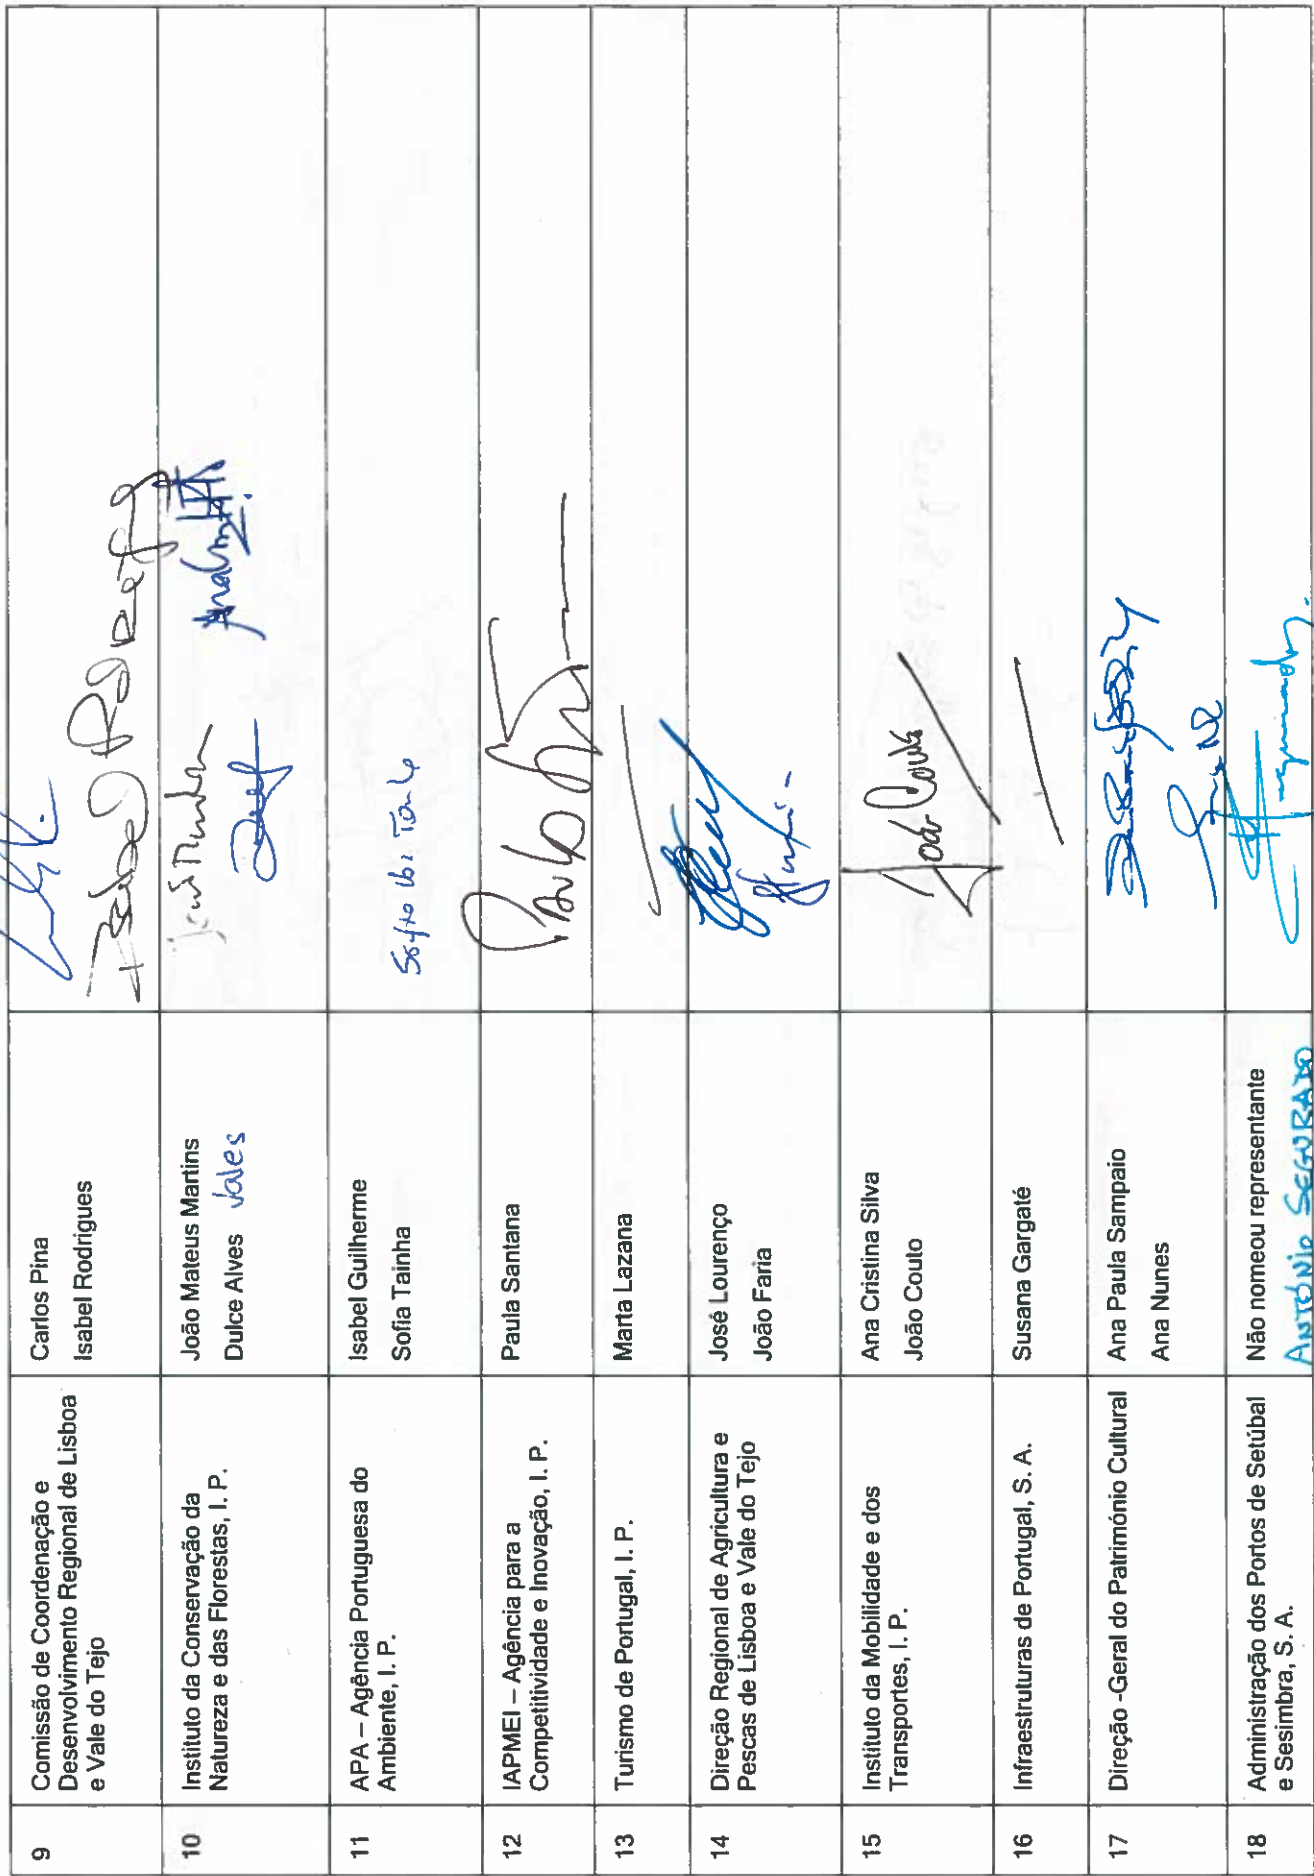 9
Comissão de Coordenação e
Desenvolvimento Regional de Lisboa
e Vale do Tejo
Carlos Pina
Isabel Rodrigues
10
Instituto da Conservação da
Natureza e das Florestas, I. P.
João Mateus Martins
Dulce Alves Vales
11
APA – Agência Portuguesa do
Ambiente, I. P.
Isabel Guilherme
Sofia Tainha
12
IAPMEI – Agência para a
Competitividade e Inovação, I. P.
Paula Santana
13
Turismo de Portugal, I. P.
Marta Lazana
14
Direção Regional de Agricultura e
Pescas de Lisboa e Vale do Tejo
José Lourenço
João Faria
15
Instituto da Mobilidade e dos
Transportes, I. P.
Ana Cristina Silva
João Couto
João Couto
16
Infraestruturas de Portugal, S. A.
Susana Gargaté
17
Direção -Geral do Património Cultural
Ana Paula Sampaio
Ana Nunes
18
Administração dos Portos de Setúbal
e Sesimbra, S. A.
Não nomeou representante
ANTÓNIO SEGURADO